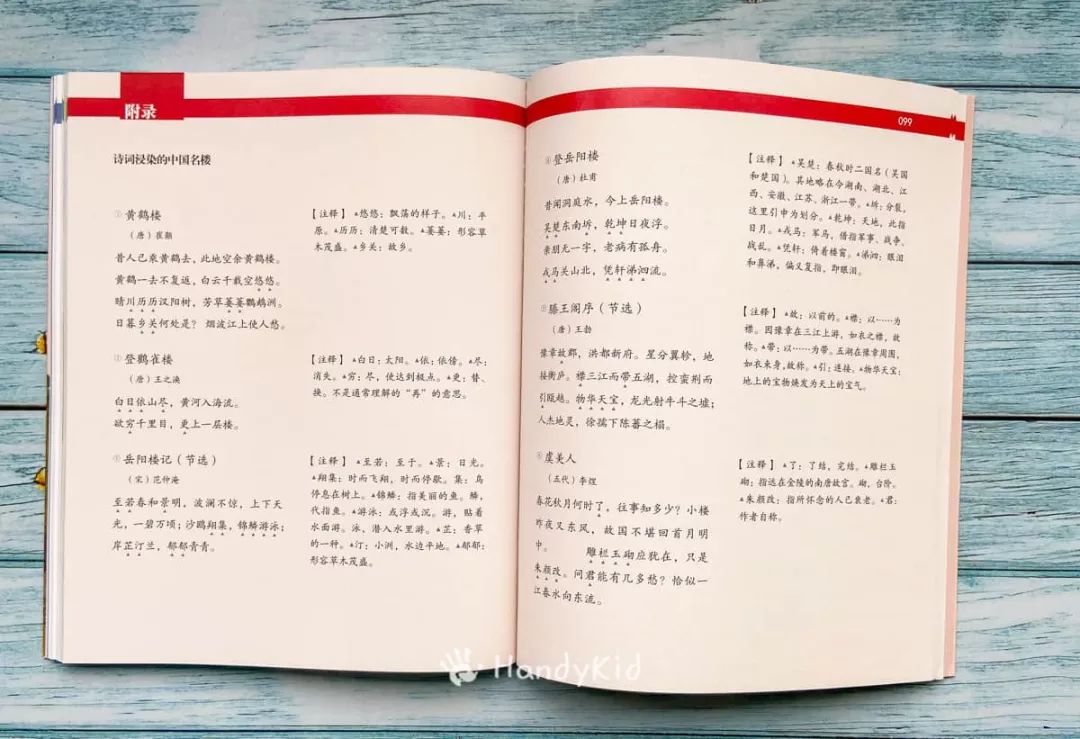 附录
诗词浸染的中国名楼
①黄鹤楼
（唐）崔颢
昔人已乘黄鹤去，此地空余黄鹤楼。
黄鹤一去不复返，白云千载空悠悠。
晴川历历汉阳树，芳草萋萋鹦鹉洲。
日暮乡关何处是？烟波江上使人愁。
【注释】▲悠悠：飘荡的样子。▲川：平
原。▲历历：清楚可数。▲萋萋：形容草
木茂盛。▲乡关：故乡。
②登鹳雀楼
（唐）王之涣
白日依山尽，黄河入海流。
欲穷千里目，更上一层楼。
【注释】▲白日：太阳。▲依：依傍。▲尽：
消失。▲穷：尽，使达到极点。▲更：替、
换。不是通常理解的“再”的意思。
③岳阳楼记（节选）
（宋）范仲淹
至若春和景明，波澜不惊，上下天
光，一碧万顷；沙鸥翔集，锦鳞游泳；
岸芷汀兰，郁郁青青。
【注释】▲至若：至于。▲景：日光。
▲翔集：时而飞翔，时而停歇。集：鸟
停息在树上。▲锦鳞：指美丽的鱼。鳞，
代指鱼。▲游泳：或浮或沉。游，贴着
水面游。泳，潜入水里游。▲芷：香草
的一种。▲汀：小洲，水边平地。▲郁郁：
形容草木茂盛。
099
④登岳阳楼
（唐）杜甫
昔闻洞庭水，今上岳阳楼。
吴楚东南坼，乾坤日夜浮。
亲朋无一字，老病有孤舟。
戎马关山北，凭轩涕泗流。
【注释】▲吴楚：春秋时二国名（吴国
和楚国）。其地略在今湖南、湖北、江
西、安徽、江苏、浙江一带。▲坼：分裂，
这里引申为划分。▲乾坤：天地，此指
日月。▲戎马：军马，借指军事、战争、
战乱。▲凭轩：倚着楼窗。▲涕泗：眼泪
和鼻涕，偏义复指，即眼泪。
⑤滕王阁序（节选）
（唐）王勃
豫章故郡，洪都新府。星分翼轸，地
接衡庐。襟三江而带五湖，控蛮荆而
引瓯越。物华天宝，龙光射牛斗之墟；
人杰地灵，徐孺下陈蕃之榻。
【注释】▲故：以前的。▲襟：以……为
襟。因豫章在三江上游，如衣之襟，故
称。▲带：以……为带。五湖在豫章周围，
如衣束身，故称。▲引：连接。▲物华天宝：
地上的宝物焕发为天上的宝气。
⑥虞美人
（五代）李煜
春花秋月何时了，往事知多少？小楼
昨夜又东风，故国不堪回首月明
中。 雕栏玉砌应犹在，只是
朱颜改。问君能有几多愁？恰似一
江春水向东流。
【注释】▲了：了结，完结。▲雕栏玉
砌：指远在金陵的南唐故宫。砌，台阶。
▲朱颜改：指所怀念的人已衰老。▲君：
作者自称。
HandyKid